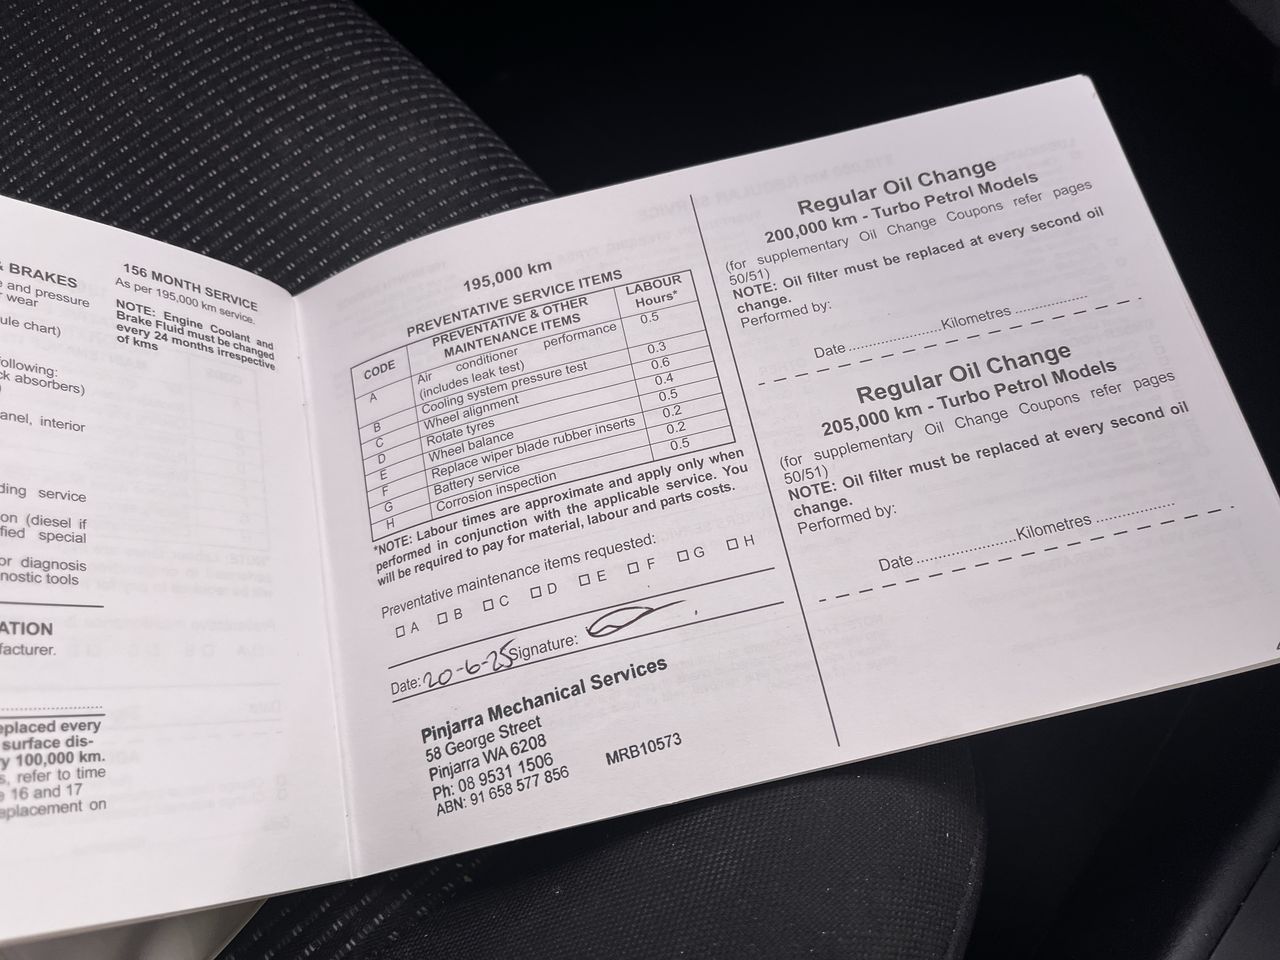 & BRAKES
e and pressure
wear
ule chart)
ollowing:
ck absorbers)
anel, interior
ding service
on (diesel if
fied special
or diagnosis
nostic tools
ATION
facturer.
eplaced every
surface dis-
y 100,000 km.
s, refer to time
e 16 and 17
eplacement on
156 MONTH SERVICE
As per 195,000 km service.
NOTE: Engine Coolant and
Brake Fluid must be changed
every 24 months irrespective
of kms
195,000 km
PREVENTATIVE SERVICE ITEMS
CODE PREVENTATIVE & OTHER MAINTENANCE ITEMS LABOUR Hours*
A Air conditioner performance (includes leak test) 0.5
B Cooling system pressure test 0.3
C Wheel alignment 0.6
D Rotate tyres 0.4
E Wheel balance 0.5
F Replace wiper blade rubber inserts 0.2
G Battery service 0.2
H Corrosion inspection 0.5
*NOTE: Labour times are approximate and apply only when
performed in conjunction with the applicable service. You
will be required to pay for material, labour and parts costs.
Preventative maintenance items requested:
☐ A ☐ B ☐ C ☐ D ☐ E ☐ F ☐ G ☐ H
Date: 20-6-25 Signature:
Pinjarra Mechanical Services
58 George Street
Pinjarra WA 6208
Ph: 08 9531 1506 MRB10573
ABN: 91 658 577 856
Regular Oil Change
200,000 km - Turbo Petrol Models
(for supplementary Oil Change Coupons refer pages
50/51)
NOTE: Oil filter must be replaced at every second oil
change.
Performed by:
Date ........................Kilometres ..................
Regular Oil Change
205,000 km - Turbo Petrol Models
(for supplementary Oil Change Coupons refer pages
50/51)
NOTE: Oil filter must be replaced at every second oil
change.
Performed by:
Date ........................Kilometres ..................